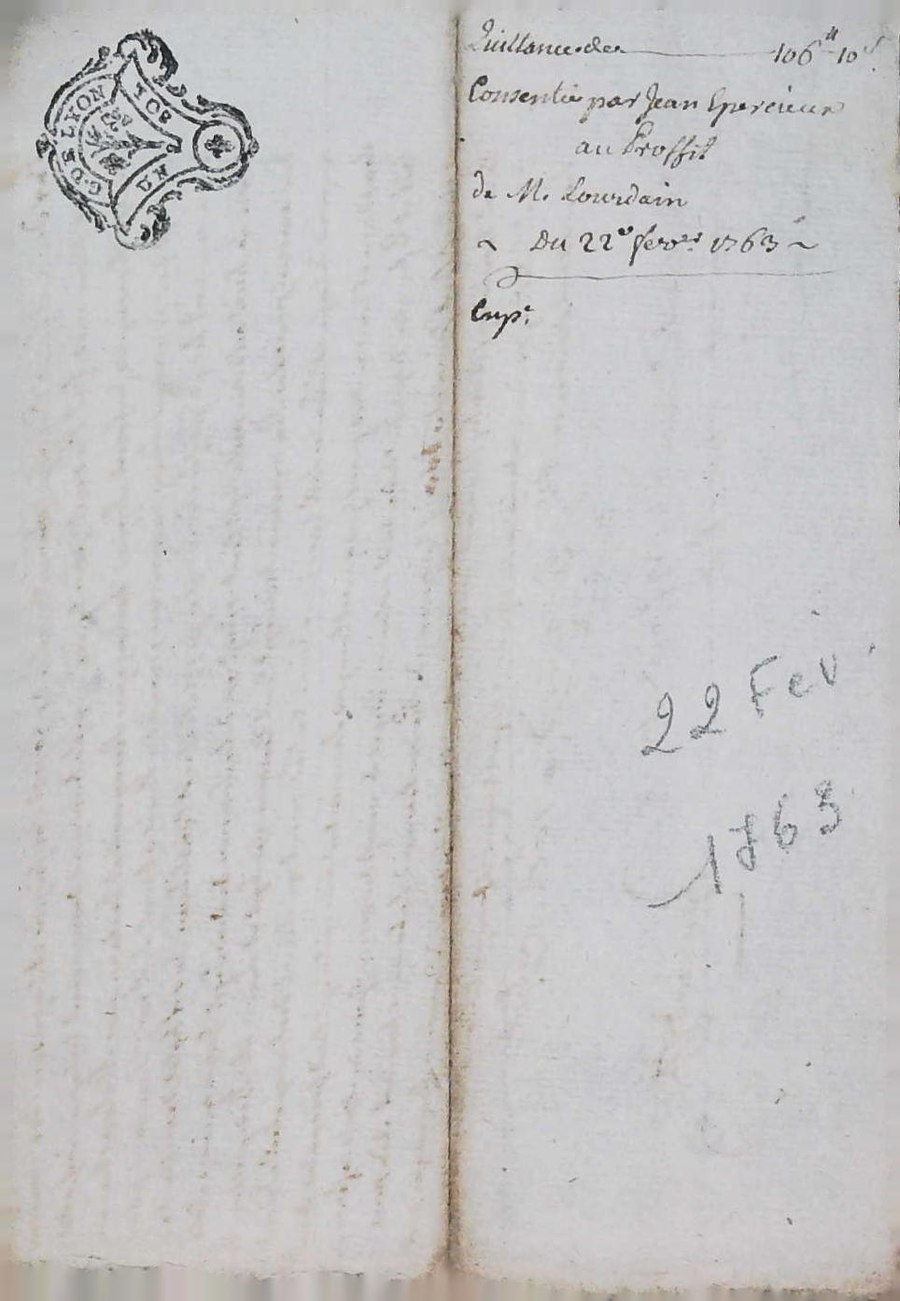 G. DE LYON
UN SOL
Quittance de 106 ₶ 10 s.
Consentie par Jean Epercieux
au Proffit
de Mr Lourdain
~ Du 22e fevrer 1763 ~
Expe.
22 Fev.
1763